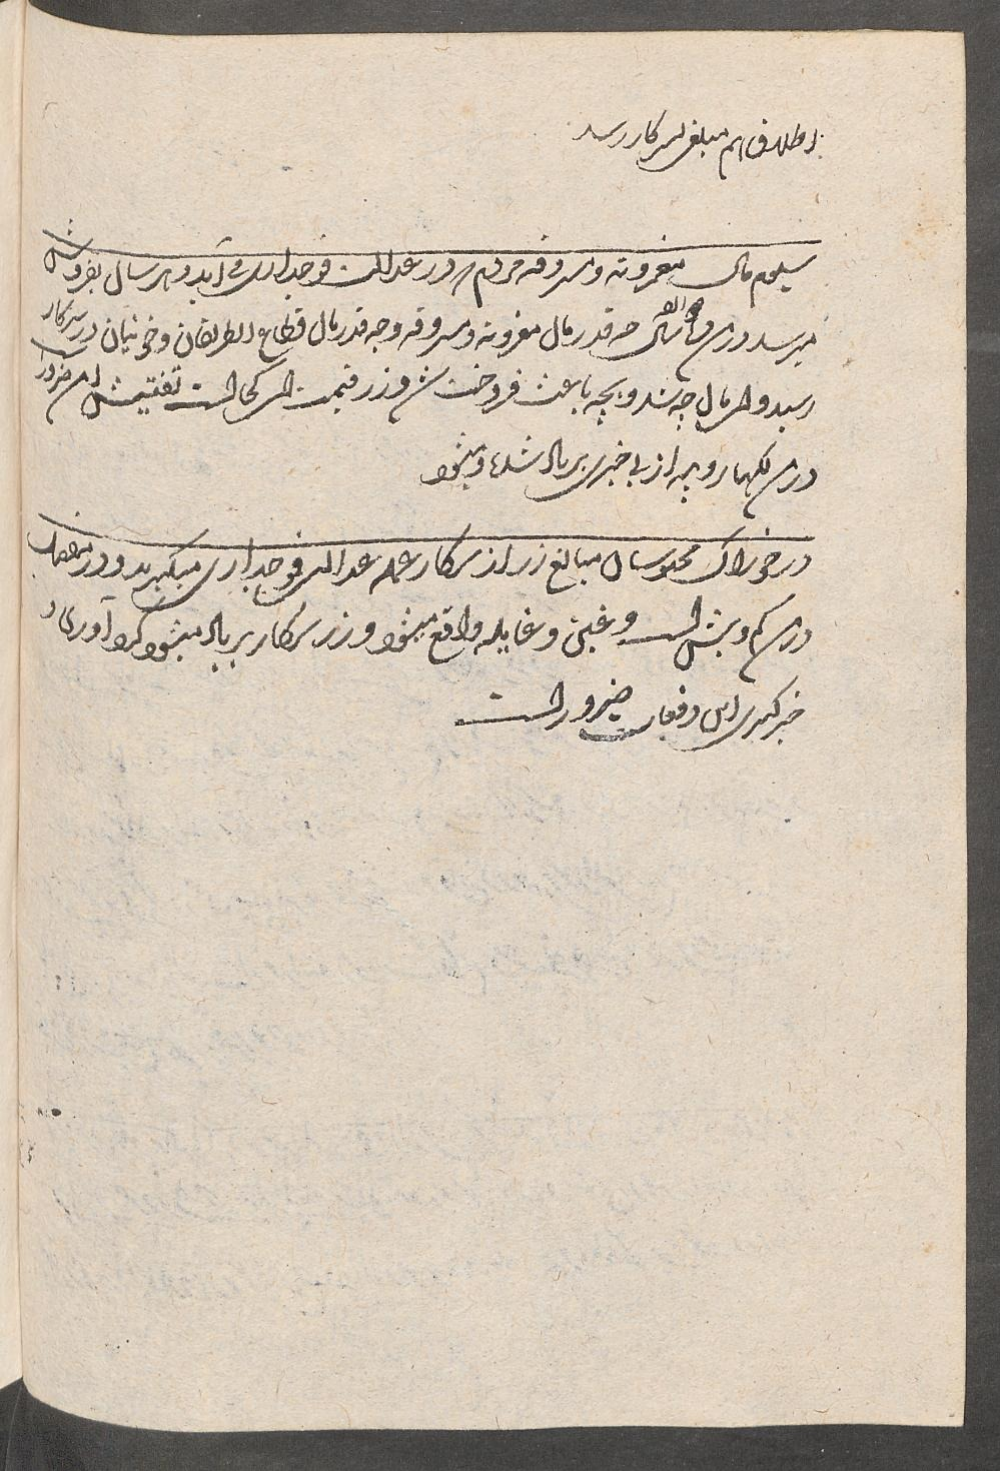 اطلاق هم مبلغی بسرکار رسد
سیوم مال مغروته و مسروقه مردم در عدالت فوجداری می آید و هر سال بفروش
میرسد درین سال چه قدر مال مغروته و مسروقه وچه قدر مال قطاع الطریقان و خونیان در سرکار
رسید و این مال چه شد و بچه باعث فروخت شد و زر قیمت اش کجا است تفتیش این ضرور است
درین لکهها روپیه از بی خبری برباد شده و میشود
در خوراک محبوسان مبالغ زر از سرکار عمله عدالت فوجداری میگیرند و در
درین کم و بیش است و غبن و واقع میشود و زر سرکار برباد میشود گرد آوری و
خبرگیری این دفعات ضرور است